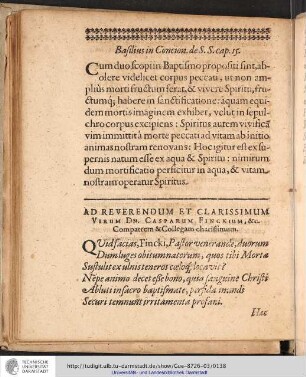 Basilius in Concion. de S. S. cap. 15.
Cum duo scopi in Baptismo propositi sint, ab-
olere videlicet corpus peccati, ut non am-
plius morti fructum ferat, & vivere Spiritu,
fructumq; habere in sanctificatione: aquam equi-
dem mortis imaginem exhiber, velut in sepul-
chro corpus excipiens: Spiritus autem vivificã
vim immittit à morte peccati ad vitam ab initio
animas nostram renovans: Hoc igitur est ex su-
pernis natum esse ex aqua & Spiritu: nimirum
dum mortificatio perficitur in aqua, & vitam
nostram operatur Spiritus.
AD REVERENDUM ET CLARISSIMUM
Virum Dn. Casparum Finckium, &c.
Compatrem & Collegam charissimum.
Quid facias, Fincki, Pastor venerande, duorum
Dum luges obitum natorum, quos tibi Mortæ
Sustulit ex ulnis teneros cœloq; locavit?
Nepe animo decet esse bono, quia sanguine Christi
Abluti in sacro baptismate, perfida mundi
Securi temnunt irritamenta profani.
Hac
TECHNISCHE
UNIVERSITÄT
DARMSTADT
http://tudigit.ulb.tu-darmstadt.de/show/Gue-8726-03/0138
Universitäts- und Landesbibliothek Darmstadt